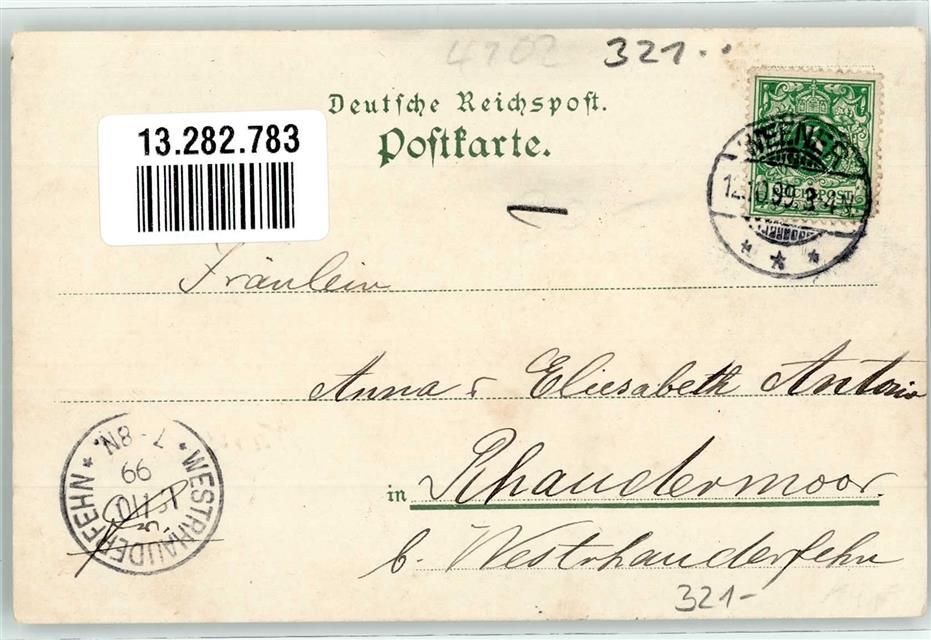 4702 321..
Deutsche Reichspost.
Postkarte.
13.282.783
WEENER
12.10.99.3-4N.
Fräulein
Anna & Eliesabeth Antoni
in Rhaudermoor.
b. Westrhauderfehn
* WESTRHAUDERFEHN *
7-8N.
99
321-